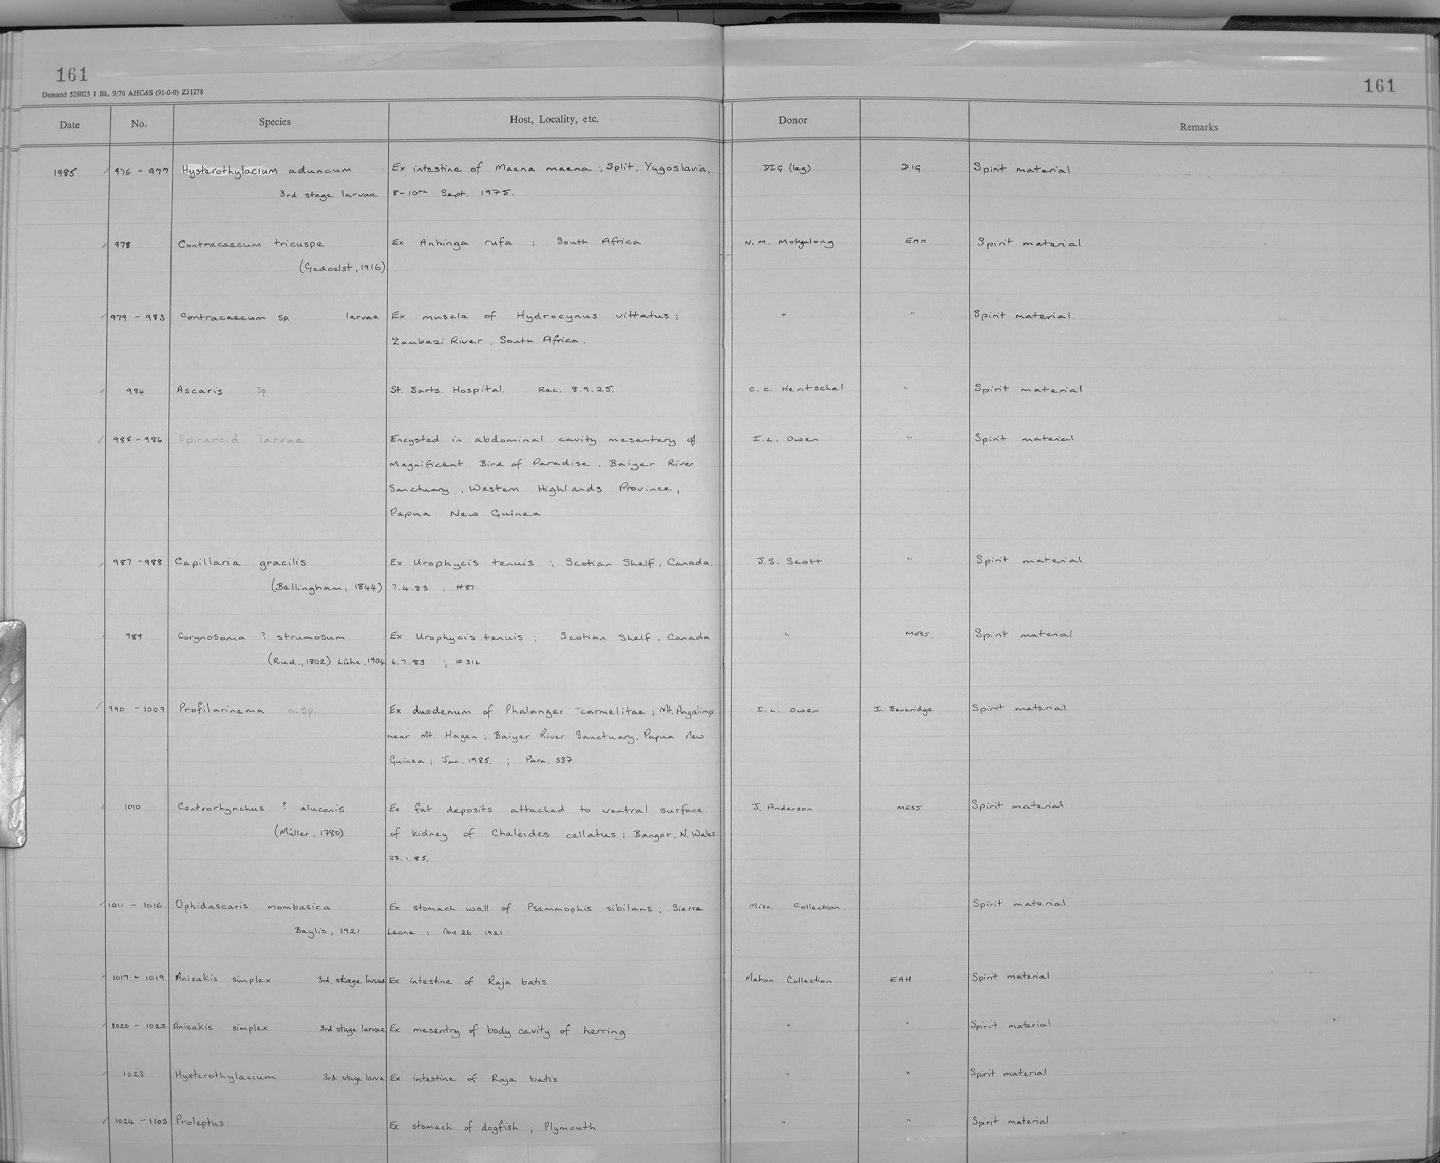 161
161
Demand 528025 1 Bk. 9/76 AHC&S (91-0-0) ZJ1278
Date No. Species Host, Locality, etc. Donor Remarks
1985 976 - 977 Hysterothylacium aduncum Ex intestine of Maena maena ; Split, Yugoslavia, DIG (leg) DIG Spirit material
3rd stage larvae 8-10th Sept. 1975.
978 Contracaecum tricuspe Ex Anhinga rufa ; South Africa N. M. EAH Spirit material
(Gedoelst, 1916)
979 - 983 Contracaecum sp. larvae Ex muscle of Hydrocynus vittatus ; " " Spirit material
Zambezi River, South Africa.
984 Ascaris sp. St. Barts. Hospital. Rec. 8.9.25. C. C. Hentschel " Spirit material
985 - 986 Spiruroid larvae Encysted in abdominal cavity mesentery of I. L. Owen " Spirit material
Magnificent Bird of Paradise, Baiyer River
Sanctuary, Western Highlands Province,
Papua New Guinea
987 - 988 Capillaria gracilis Ex Urophycis tenuis ; Scotian Shelf, Canada. J.S. Scott " Spirit material
(Bellingham, 1844) 7.4.83 ; #87
989 Corynosoma ? strumosum Ex Urophycis tenuis ; Scotian Shelf, Canada " MESJ. Spirit material
(Rud., 1802) Lühe, 1904 6.7.83 ; #314
990 - 1009 Profilarinema n. sp. Ex duodenum of Phalanger carmelitae ; Mt. Angalimp I. L. Owen I. Beveridge Spirit material
near Mt. Hagen ; Baiyer River Sanctuary, Papua New
Guinea ; Jan. 1985. ; Para. 337
1010 Centrorhynchus ? aluconis Ex fat deposits attached to ventral surface J. Anderson MESJ Spirit material
(Müller, 1780) of kidney of Chalcides ocellatus ; Bangor, N. Wales
23.1.85.
1011 - 1016 Ophidascaris mombasica Ex stomach wall of Psammophis sibilans, Sierra Misc. Collection Spirit material
Baylis, 1921 Leone ; Nov 26 1921
1017 - 1019 Anisakis simplex 3rd stage larvae Ex intestine of Raja batis Mahon Collection EAH Spirit material
1020 - 1022 Anisakis simplex 3rd stage larvae Ex mesentry of body cavity of herring " " Spirit material
1023 Hysterothylacium 3rd stage larva Ex intestine of Raja batis " " Spirit material
1024 - 1103 Proleptus Ex stomach of dogfish ; Plymouth " " Spirit material